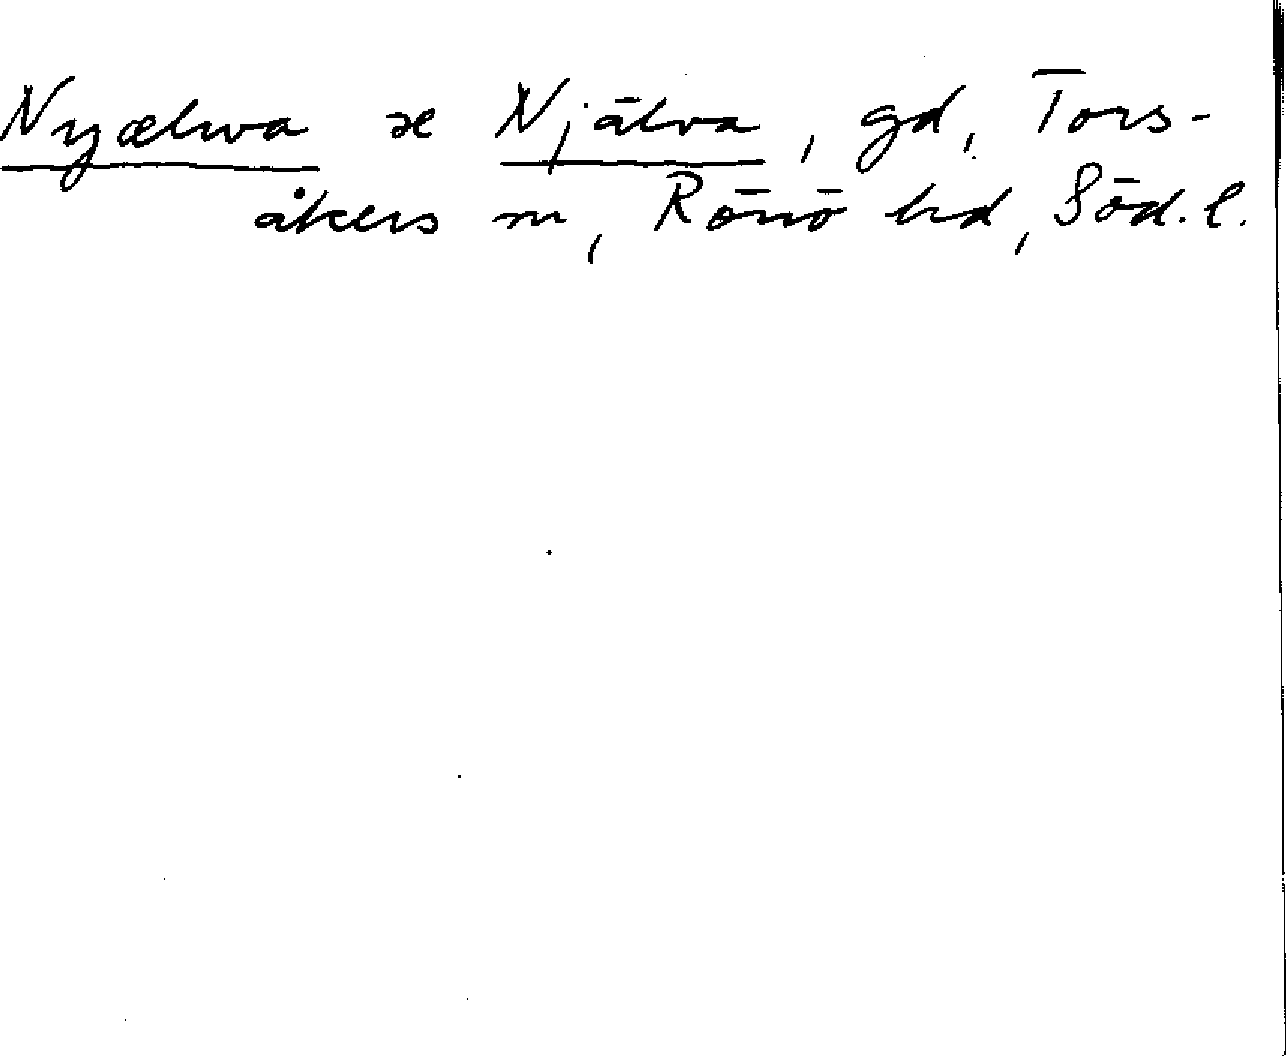 Nyælwa se Njälva, gd, Tors-
åkers sn, Rönö hd, Söd. l.